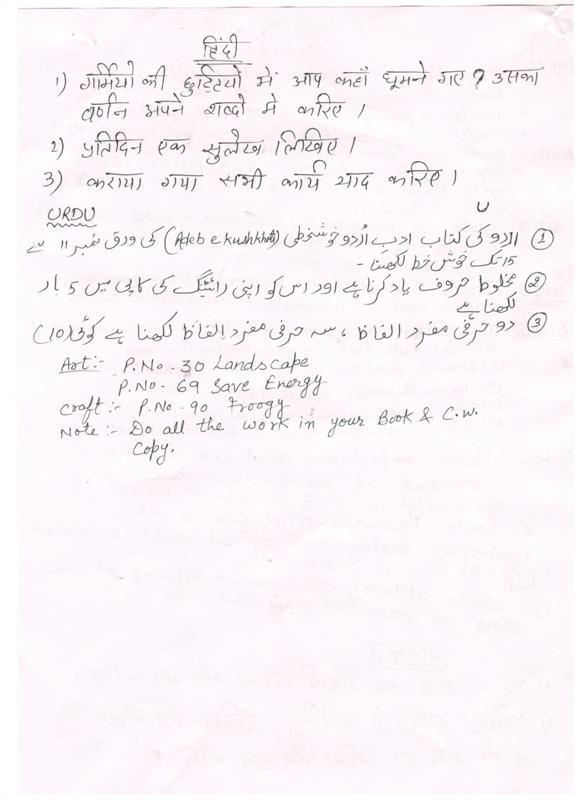 हिंदी
1) गर्मियो की छुट्टियो में आप कहाँ घूमने गए? उसका
वर्णन अपने शब्दो मे करिए।
2) प्रतिदिन एक सुलेख लिखिए।
3) कराया गया सभी कार्य याद करिए।
URDU
① اردو کی کتاب ادبِ اُردو خوشخطی (Adeb e kushkhati) کی ورق نمبر ۱۱ سے
15 تک خوش خط لکھنا -
② مخلوط حروف یاد کرنا ہے اور اس کو اپنی رائٹنگ کی کاپی میں 5 بار
لکھنا ہے
③ دو حرفی مفرد الفاظ، سہ حرفی مفرد الفاظ لکھنا ہے کوئی (10)
Art:- P.No - 30 Landscape
P.No - 69 Save Energy
Craft:- P.No - 90 Froogy
Note:- Do all the work in your Book & C.w.
Copy.